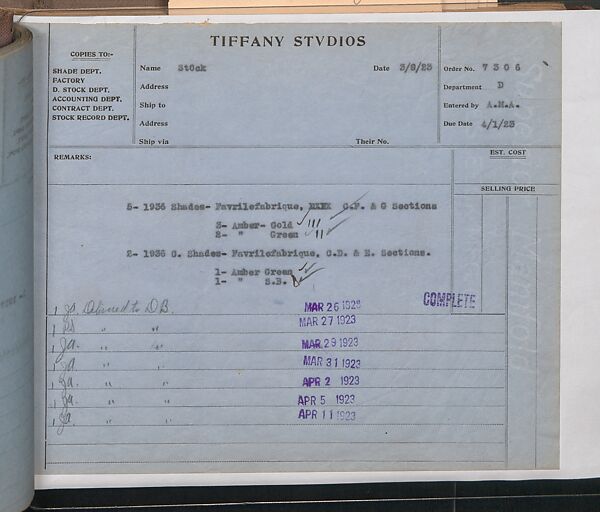 TIFFANY STVDIOS
COPIES TO:-
SHADE DEPT.
FACTORY
D. STOCK DEPT.
ACCOUNTING DEPT.
CONTRACT DEPT.
STOCK RECORD DEPT.
Name Stock Date 3/8/23
Address
Ship to
Address
Ship via Their No.
Order No. 7306
Department D
Entered by A.M.A.
Due Date 4/1/23
REMARKS:
EST. COST
SELLING PRICE
5- 1936 Shades- Favrilefabrique, C.F. & G Sections
3- Amber- Gold
2- " Green
2- 1936 C. Shades- Favrilefabrique, C.D. & E. Sections.
1- Amber Green
1- " S.B.
COMPLETE
1 Ja. Delivered to D.B. MAR 26 1923
1 " " MAR 27 1923
1 Ja. " " MAR 29 1923
1 Ja. " " MAR 31 1923
1 Ja. " " APR 2 1923
1 Ja. " " APR 5 1923
1 Ja. " " APR 11 1923